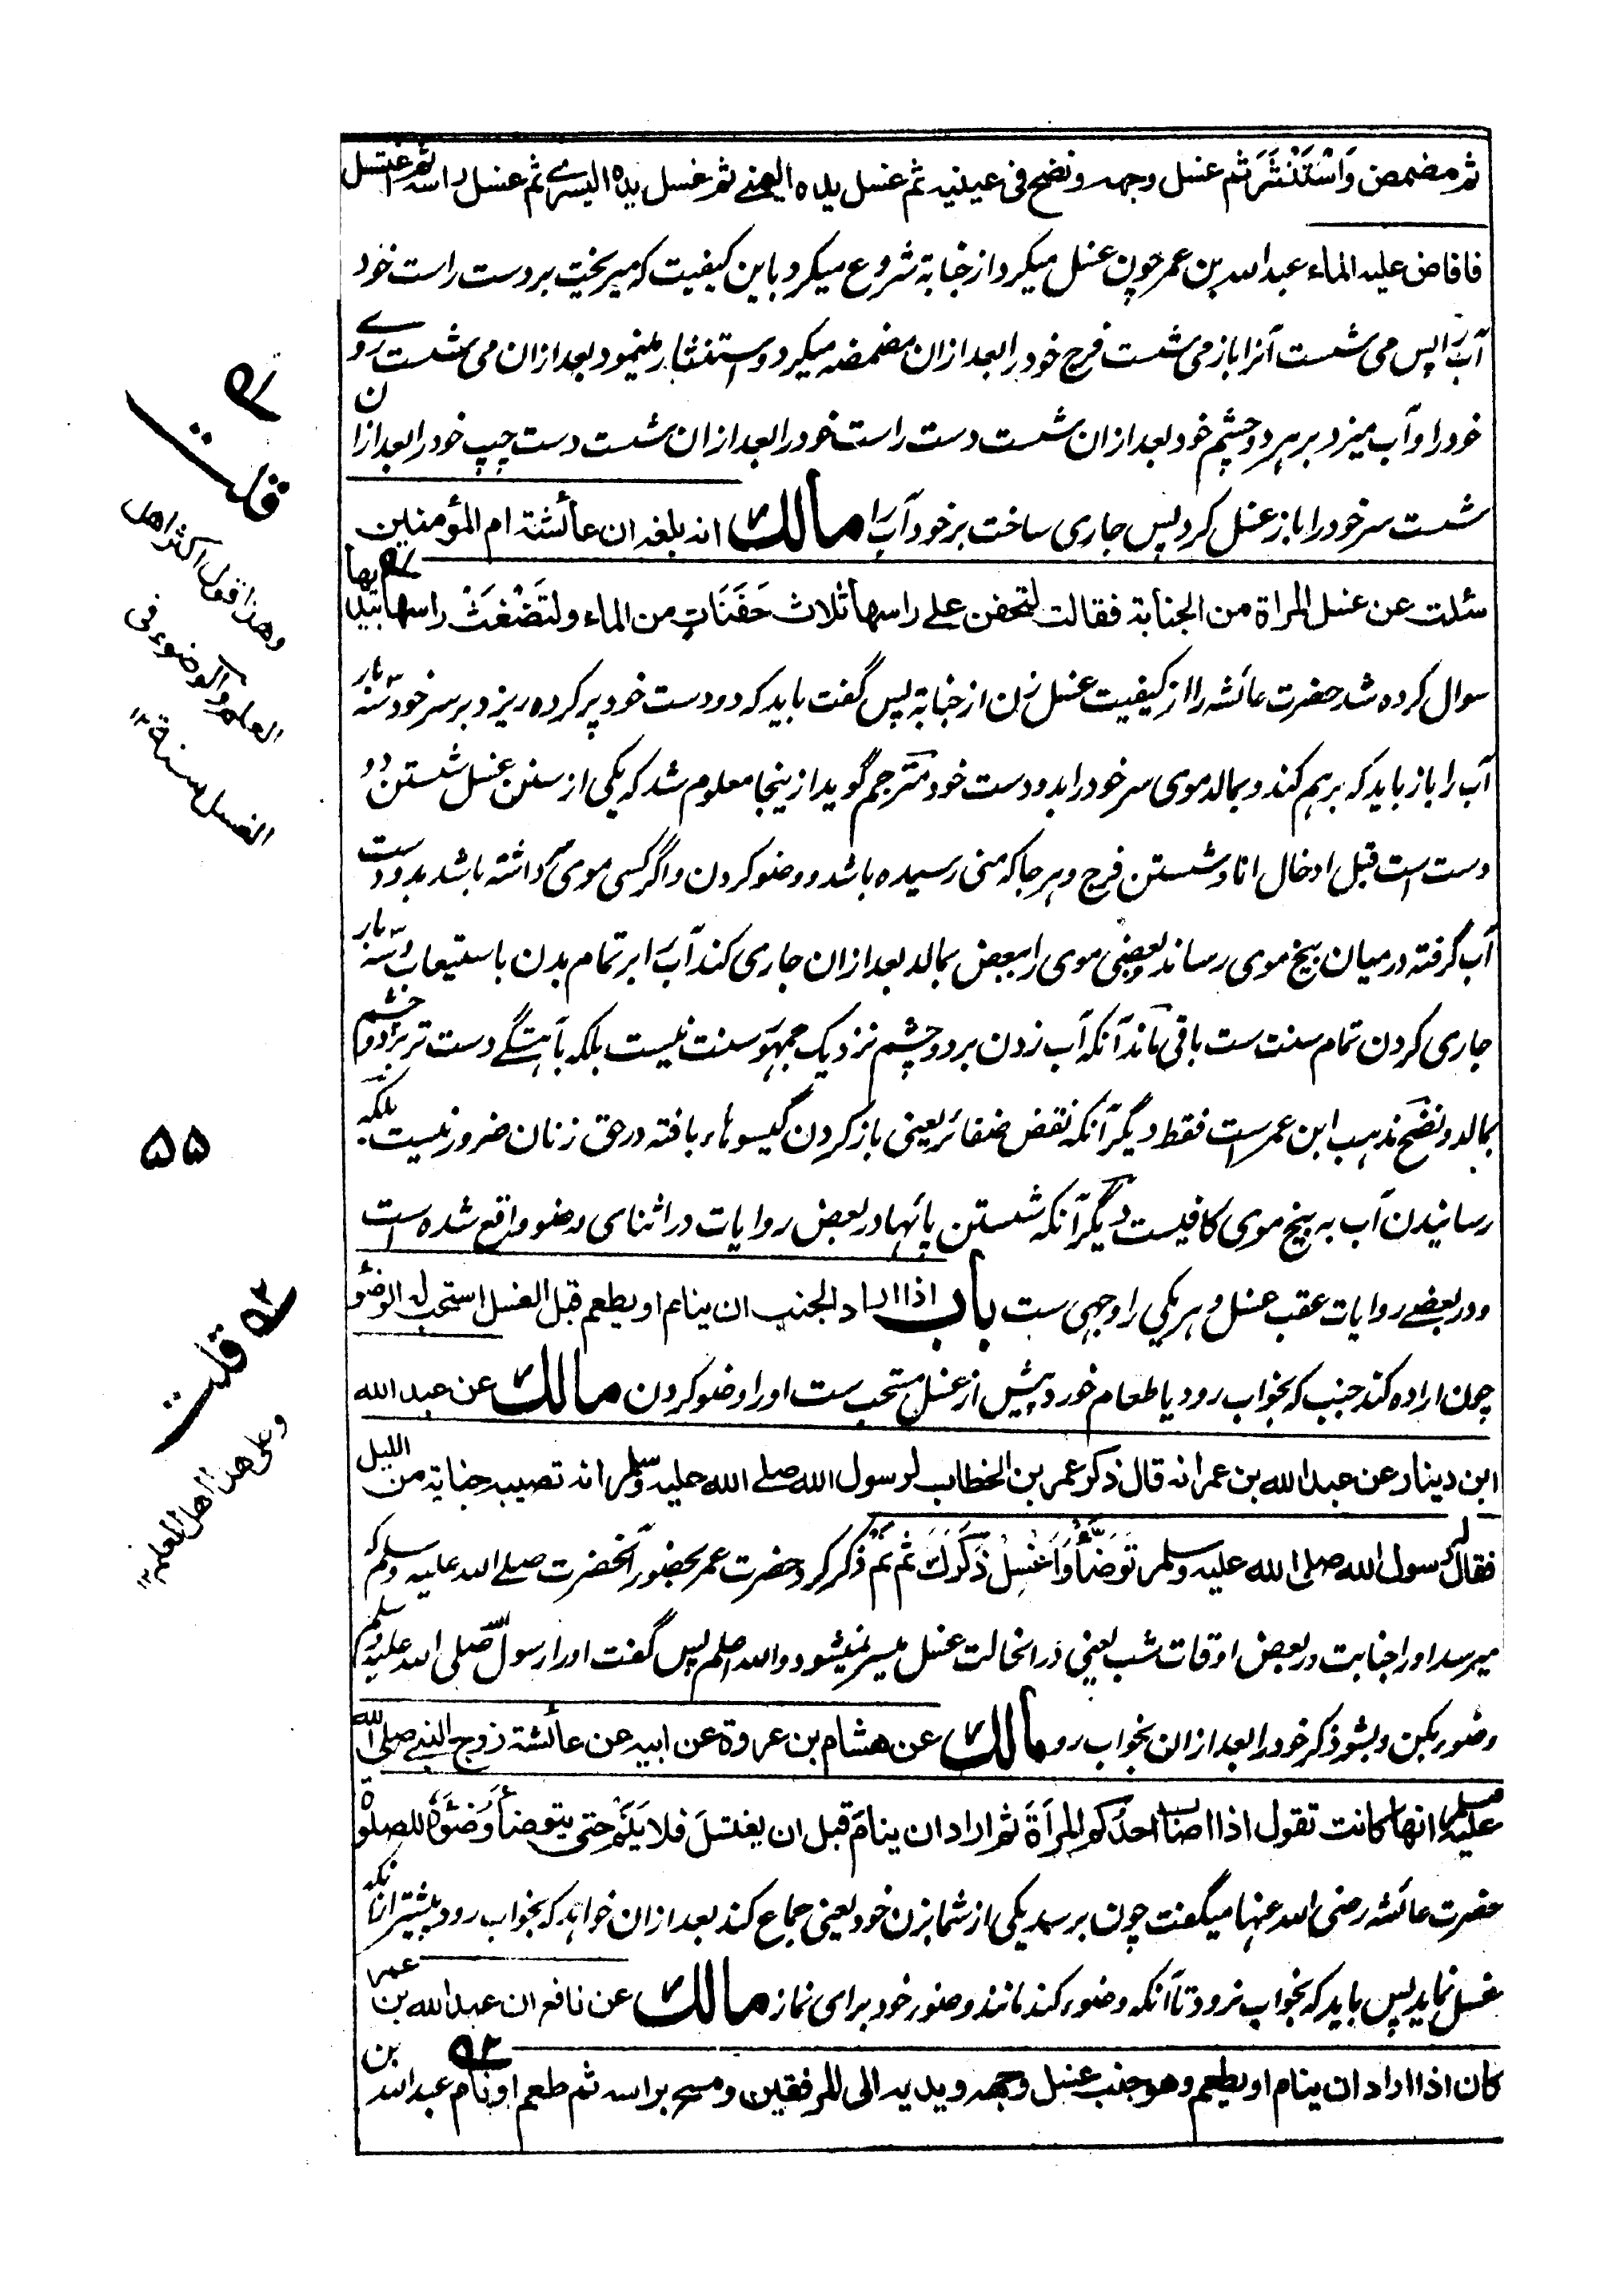 ثم مضمض وَاسْتَنْثَرَ ثم غسل وجهه ونضح فی عینیه ثم غسل یده الیمنے ثم غسل یده الیسرے ثم غسل راسه ثم اغتسل
فافاض علیه الماء عبد الله بن عمر چون غسل میکرد از جنابة شروع میکرد باین کیفیت که میریخت بر دست راست خود
آب را پس می شست آنرا باز می شست فرج خود را بعد ازان مضمضه میکرد و استنثار مینمود بعد ازان می شست روے
خود را و آب میزد بر هر دو چشم خود بعد ازان شست دست راست خود را بعد ازان شست دست چپ خود را بعد ازان
شست سر خود را باز غسل کرد پس جاری ساخت بر خود آب را مالك انه بلغه ان عائشة ام المؤمنین
سئلت عن غسل المراة من الجنابة فقالت لتحفن علے راسها ثلاث حَفَنَاتٍ من الماء ولتَضْغَثْ راسها بیدیها
سوال کرده شد حضرت عائشه را از کیفیت غسل زن از جنابة پس گفت باید که دو دست خود پر کرده ریزد بر سر خود سه بار
آب را باز باید که بر هم کند و بمالد موی سر خود را بدو دست خود مترجم گوید از ینجا معلوم شد که یکی از سنن غسل شستن دو
دست است قبل ادخال انا و شستن فرج و هر جا که منی رسیده باشد و وضو کردن و اگر کسی موی داشته باشد بدو دست
آب گرفته در میان بیخ موی رساند و بعضی موی را ببعض بمالد بعد ازان جاری کند آب را بر تمام بدن با ستیعاب و سه بار
جاری کردن تمام سنت ست باقی ماند آنکه آب زدن بر دو چشم نزدیک جمهور سنت نیست بلکه بآهستگے دست تر بر دو چشم
بمالد و نضح مذهب ابن عمر است فقط دیگر آنکه نقض ضفائر یعنی باز کردن گیسوهاء بافته در حق زنان ضرور نیست بلکه
رسانیدن آب به بیخ موی کافیست دیگر آنکه شستن پائها در بعض روایات در اثنای وضو واقع شده است
و در بعضے روایات عقب غسل و هر یکی را وجهی ست باب اذا اراد الجنب ان ینام او یطعم قبل الغسل استحب له الوضؤ
چون اراده کند جنب که بخواب رود یا طعام خورد پیش از غسل مستحب ست او را وضو کردن مالك عن عبد الله
ابن دینار عن عبد الله بن عمر انه قال ذکر عمر بن الخطاب لرسول الله صلے الله علیه وسلم انه تصیبه جنابة من اللیل
فقال له رسول الله صلی الله علیه وسلم تَوَضَّأْ وَاغْسِلْ ذَكَرَكَ ثم نَمْ ذکر کرد حضرت عمر بحضور آنحضرت صلے الله علیه وسلم که
میرسد او را جنابت در بعض اوقات شب یعنی در انحالت غسل میسر نمیشود والله اعلم پس گفت او را رسول صلی الله علیه وسلم
وضو بکن و بشو ذکر خود را بعد ازان بخواب رو مالك عن هشام بن عروة عن ابیه عن عائشة زوج النبے صلی الله
علیه وسلم انها کانت تقول اذا اصاب احدکم المرأة ثم اراد ان ینام قبل ان یغتسل فلا یَنَمْ حتی یتوضأ وُضُوْءَه للصلوة
حضرت عائشه رضی الله عنها میگفت چون برسد یکی از شما بزن خود یعنی جماع کند بعد ازان خواهد که بخواب رود پیشتر از آنکه
غسل نماید پس باید که بخواب نرود تا آنکه وضوء کند مانند وضوء خود برای نماز مالك عن نافع ان عبد الله بن عمر
کان اذا اراد ان ینام او یطعم وهو جنب غسل وجهه ویدیه الی المرفقین ومسح براسه ثم طعم او نام عبد الله بن
قلت
وهذا قول اکثر اهل
العلم والوضوء فی
الغسل سنة ۱۲
۵۵
قلت
وعلی هذا اهل العلم ۱۲